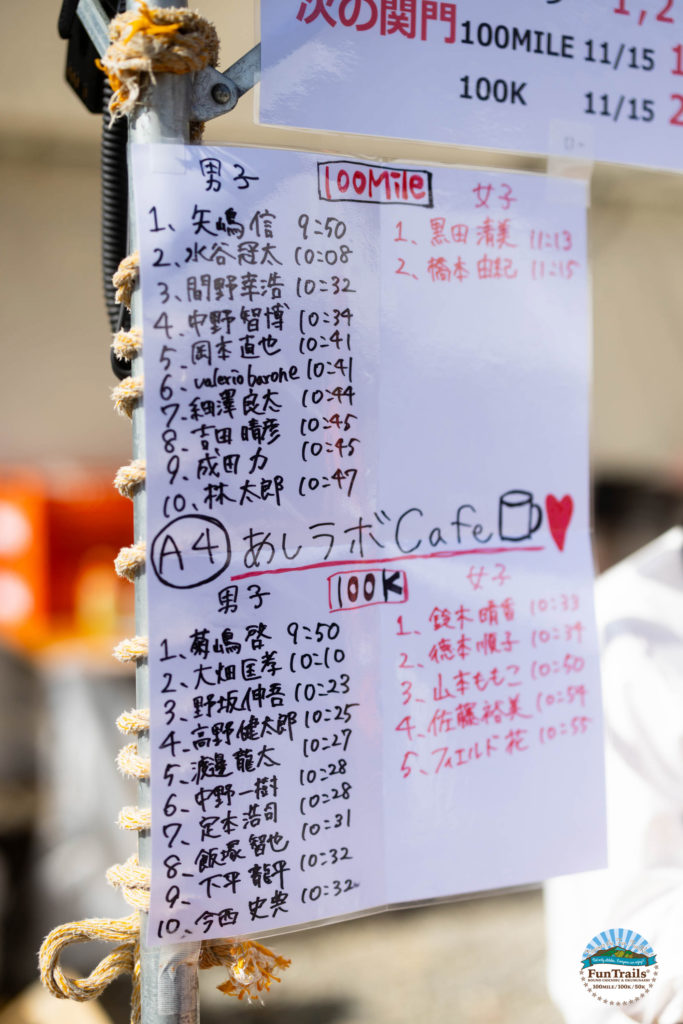 次の関門
100MILE 11/15
100K 11/15
男子
100Mile
1、矢嶋 信 9:50
2、水谷 経太 10:08
3、間野 幸浩 10:32
4、中野 智博 10:34
5、岡本 直也 10:41
6、valerio barone 10:41
7、細澤 良太 10:44
8、吉田 晴彦 10:45
9、成田 力 10:45
10、林 太郎 10:47
女子
1、黒田 清美 11:13
2、橋本 由紀 11:15
A4 あしラボCafe
男子
100K
1、菊嶋 啓 9:50
2、大畑 匡孝 10:10
3、野坂 伸吾 10:23
4、高野 健太郎 10:25
5、渡邊 龍太 10:27
6、中野 一樹 10:28
7、定本 浩司 10:28
8、飯塚 智也 10:31
9、下平 龍平 10:32
10、今西 史典 10:32
女子
1、鈴木 晴香 10:33
2、徳本 順子 10:34
3、山本 ももこ 10:50
4、佐藤 裕美 10:54
5、フィエルド 花 10:55
FunTrails
100MILE/100K/50K